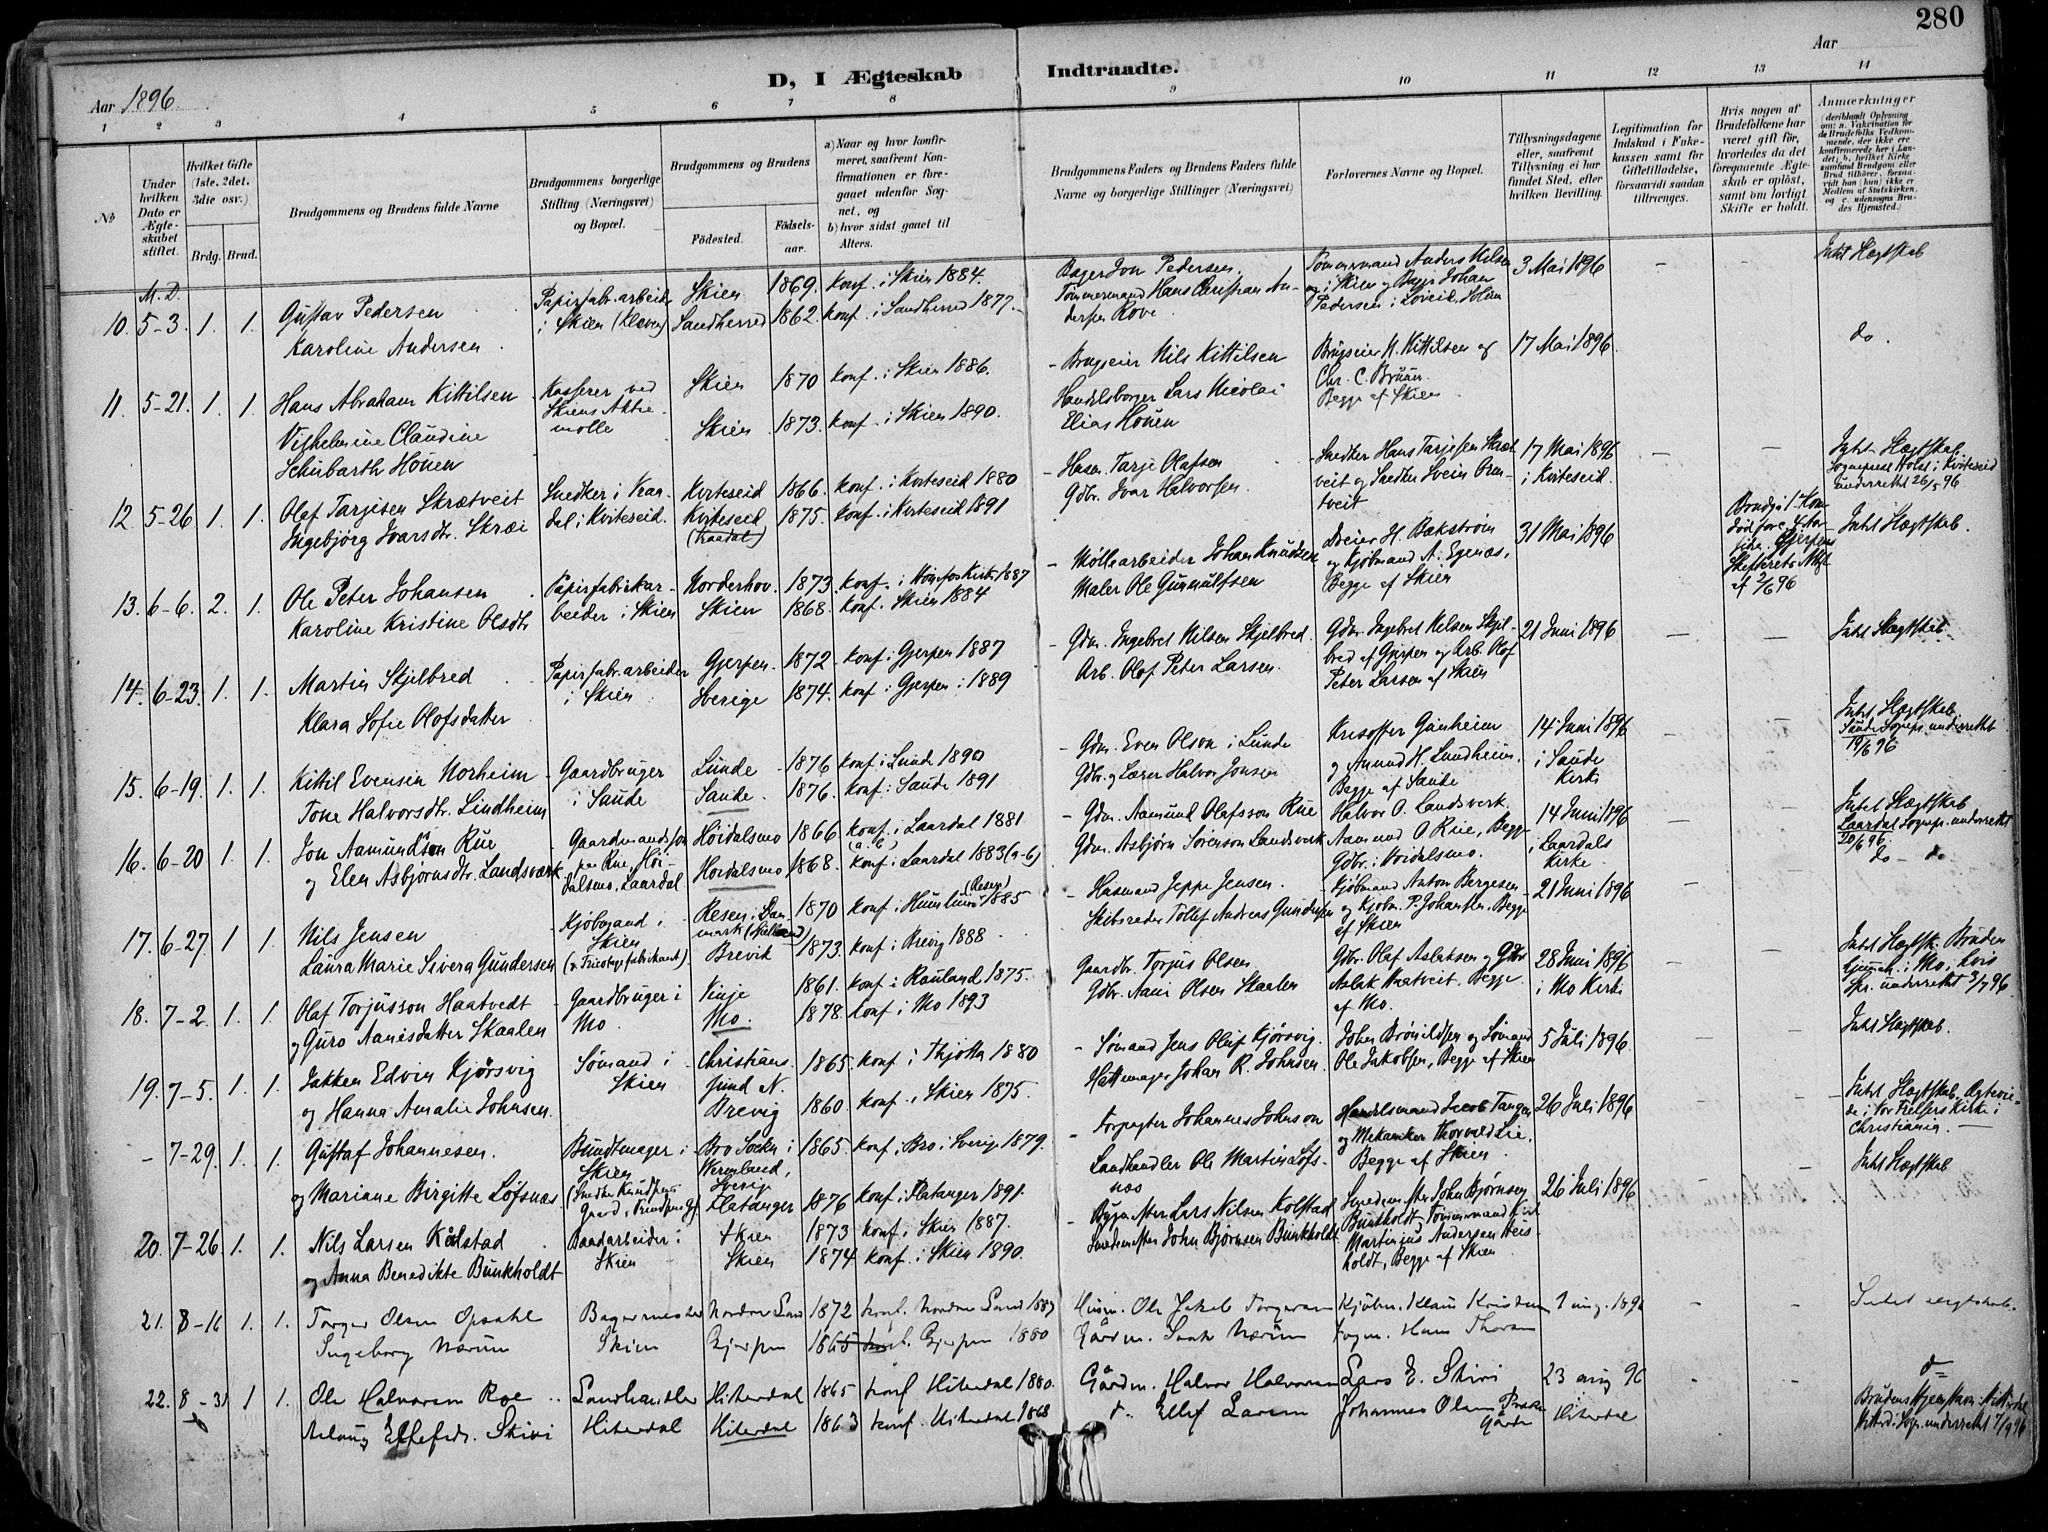 280
D, I Ægteskab Indtraadte.
Aar 1896
Aar
1 2 3 4 5 6 7 8 9 10 11 12 13 14
No
Under hvilken Dato er Ægteskabet stiftet.
Hvilket Gifte (1ste, 2det. 3die osv.)
Brdg. Brud.
Brudgommens og Brudens fulde Navne
Brudgommens borgerlige Stilling (Næringsvei) og Bopæl.
Brudgommens og Brudens
Fødested.
Fødselsaar.
a) Naar og hvor konfirmeret, saafremt Konfirmationen er foregaaet udenfor Sognet, og
b) hvor sidst gaaet til Alters.
Brudgommens Faders og Brudens Faders fulde Navne og borgerlige Stillinger (Næringsvei)
Forlovernes Navne og Bopæl.
Tillysningsdagene eller, saafremt Tillysning ei har fundet Sted, efter hvilken Bevilling.
Legitimation for Indskud i Enkekassen samt for Giftetilladelse, forsaavidt saadan tiltrænges.
Hvis nogen af Brudefolkene har været gift før, hvorledes da det foregaaende Ægteskab er opløst, samt om lovligt Skifte er holdt.
Anmærkninger (deriblandt Oplysning om: a. Vakcination for de Brudefolks Vedkommende, der ikke ere konfirmerede her i Landet; b. hvilket Kirkesamfund Brudgom eller Brud tilhører, forsaavidt han (hun) ikke er Medlem af Statskirken, og c. udensogns Brudes Hjemsted.)
M. D.
10. 5-3. 1. 1. Gustav Pedersen Papirfabr.arbeider Skien 1869. konf. i Skien 1884. Bager Jon Pedersen. Tømmermand Anders Nilsen 3 Mai 1896 Intet Slægtskab
Karoline Andersen i Skien (Kleven) Sandherred 1862. konf. i Sandherred 1877. Tømmermand Hans Christian Andersen Rove. i Skien og Bager Johan Pedersen i
11. 5-21. 1. 1. Hans Abraham Kittilsen Kasserer ved Skien 1870 konf. i Skien 1886. Brugseier Nils Kittilsen Brugseier N. Kittilsen og 17 Mai 1896. do.
Vilhelmine Claudine Skiens Aktiemølle Skien 1873. konf. i Skien 1890. Handelsborger Lars Nicolai Chr. C. Bruun.
Schubarth Houen Elias Houen Begge af Skien
12. 5-26 1. 1. Olaf Tarjesen Skrætveit Snedker i Kviteseid 1866. konf. i Kviteseid 1880 Husm. Tarje Olafsen Snedker Hans Tarjesen Skrætveit og Snedker Svein 17 Mai 1896 Intet Slægtskab
Ingebjörg Ivarsdtr. Skræi dal i Kviteseid. Kviteseid (Vraadal) 1875. konf. i Kviteseid 1891 Gdbr. Ivar Halvorsen. i Kviteseid. Sognepræst Holst i Kviteseid underrettet 26/5 96
13. 6-6. 2. 1. Ole Peter Johansen Papirfabrikar- Norderhov. 1873. konf. i Hönefos Kirke 1887 Møllearbeider Johan Knudsen Dreier H. Bakstrøm 31 Mai 1896 Intet Slægtskab.
Karoline Kristine Olsdtr beider i Skien Skien 1868. konf. Skien 1884 Maler Ole Gunnulfsen og Kjøbmand A. Egenæs, Begge af Skien Gjerpens Skifterets Attest af 2/6 96
14. 6-23. 1. 1. Martin Skjelbred Papirfabr.arbeider Gjerpen. 1872. konf. i Gjerpen 1887 Gdm. Ingebret Nilsen Skjelbred. Gdm. Ingebret Nilsen Skjelbred af Gjerpen og Arb. Olof 21 Juni 1896 Intet Slægtskab
Klara Sofie Olofsdatter i Skien Sverige 1874. konf. i Gjerpen i 1889 Arb. Olof Peter Larsen. Peter Larsen af Skien
15. 6-19. 1. 1. Kittil Evensen Norheim Gaardbruger Lunde 1876 konf. i Lunde 1890 Gdm. Even Olson i Lunde Kristoffer Gunheim 14 Juni 1896 Intet Slægtskab.
Tone Halvorsdtr. Lindheim i Saude Saude. 1876. konf. i Saude 1891 Gdbr. og Lærer Halvor Jonsen og Amund H. Lundheim, Begge af Saude i Saude Kirke Saude Sognep. underrettet 19/6 96
16. 6-20 1. 1. Jon Aamundson Rue Gaardmandssøn Høidalsmo 1866 konf. i Laardal 1881 (a. b) Gdm. Aamund Olafsson Rue Halvor O. Landsverk. 14 Juni 1896 Intet Slægtskab
og Elen Asbjørnsdtr. Landsværk paa Rue, Høidalsmo, Laardal Høidalsmo 1868. konf. i Laardal 1883 (a-b) Gdm. Asbjørn Sørenson Landsverk Aamund O Rue, Begge Gdbr. i Høidalsmo. i Laardals Kirke. Laardal Sognep. underrettet 20/6 96.
17. 6-27. 1 1. Nils Jensen Kjöbmand i Skien Resen i Danmark 1870 konf. i Humlum (Resen) 1885 Husmand Jeppe Jensen. Kjöbmand Anton Bergesen 21 Juni 1896 do - do
Laura Marie Sivera Gundersen (v. Tricotagefabrikant) Brevik 1873. konf. i Brevig 1888 Skibsreder Tollef Andreas Gundersen og Kjöbm. P. Johansen, Begge af Skien
18. 7-2. 1. 1. Olaf Torjusson Haatvedt Gaardbruger i Vinje 1861. konf. i Rauland 1875. Gaardbr. Torjus Olsen Gdbr. Olaf Aslaksen og Gdbr 28 Juni 1896 Intet Slægtsk. Bruden
og Guro Aanisdatter Skaalen Mo. Mo. 1878. konf. i Mo 1893 Gdbr. Aani Olsen Skaalen Aslak Haatveit, Begge af Mo. i Mo Kirke hjemmeh. i Mo, hvis Spr. underrettet 3/7 96.
19. 7-5. 1. 1. Jakken Edvin Kjørsvig Sømand i Christians- 1865. konf. i Thjøtta 1880 Sømand Jens Oluf Kjørsvig. Johan Brønildsen og Sømand 5 Juli 1896. Intet Slægtskab.
og Hanna Amalie Johnsen. Skien sund N. Brevig 1860. konf. i Skien 1875. Hattemager Johan R. Johnsen. Ole Jakobsen, Begge af Skien
- 7-29. 1. 1. Gustaf Johannesen. Bundtmager i Bro Sockn i 1865. konf. i Bro i Sverige 1879. Forpagter Johannes Johnson Handelsmand Jacob Tangen 26 Juli 1896 Intet Slægtskab. Ægteviede i Vor Frelsers Kirke i Christiania.
og Mariane Birgitte Løfsnæs Skien Wermland, Sverige Flatanger 1876 konf. i Flatanger 1891. Landhandler Ole Martin Løfsnæs og Mekaniker Thorvald Lie, Begge af Skien
20. 7-26 1. 1. Nils Larsen Kolstad Baadarbeider i Skien 1873 konf. i Skien 1887. Lars Nilsen Kolstad John Bjørnsen Bunkholdt, Tømmermand 26 Juli 1896 Intet Slægtskab
og Anna Benedikte Bunkholdt Skien Skien 1874 konf. i Skien 1890. John Bjørnsen Bunkholdt Martinius Andersen Heisholdt, Begge af Skien
21. 8-16 1. 1. Torger Olsen Opsahl Bagermester Nordre Land 1872 konf. Nordre Land 1887 Husm. Ole Jakob Torgersen Kjøbm. Klaus Kristensen aug. 1896 Intet slegtskab.
Ingeborg Nærum Skien Gjerpen 1865 konf. Gjerpen 1880 Gårdm. Isak Nærum Hans Thoresen
22. 8-31 1 1. Ole Halvorsen Roe Landhandler Hiterdal 1865 konf. Hiterdal 1880. Gårdm. Halvor Halvorsen Lars E. Skivi 23 aug 96 do
Aslaug Ellefsdr. Skivi Hiterdal Hiterdal 1863 konf. Hiterdal 1868 do. Ellef Larsen Johannes Olsen Hiterdal Brudens Hjemstavn Hitterdal
Hitterd. Sogn. underrettet 7/9 96